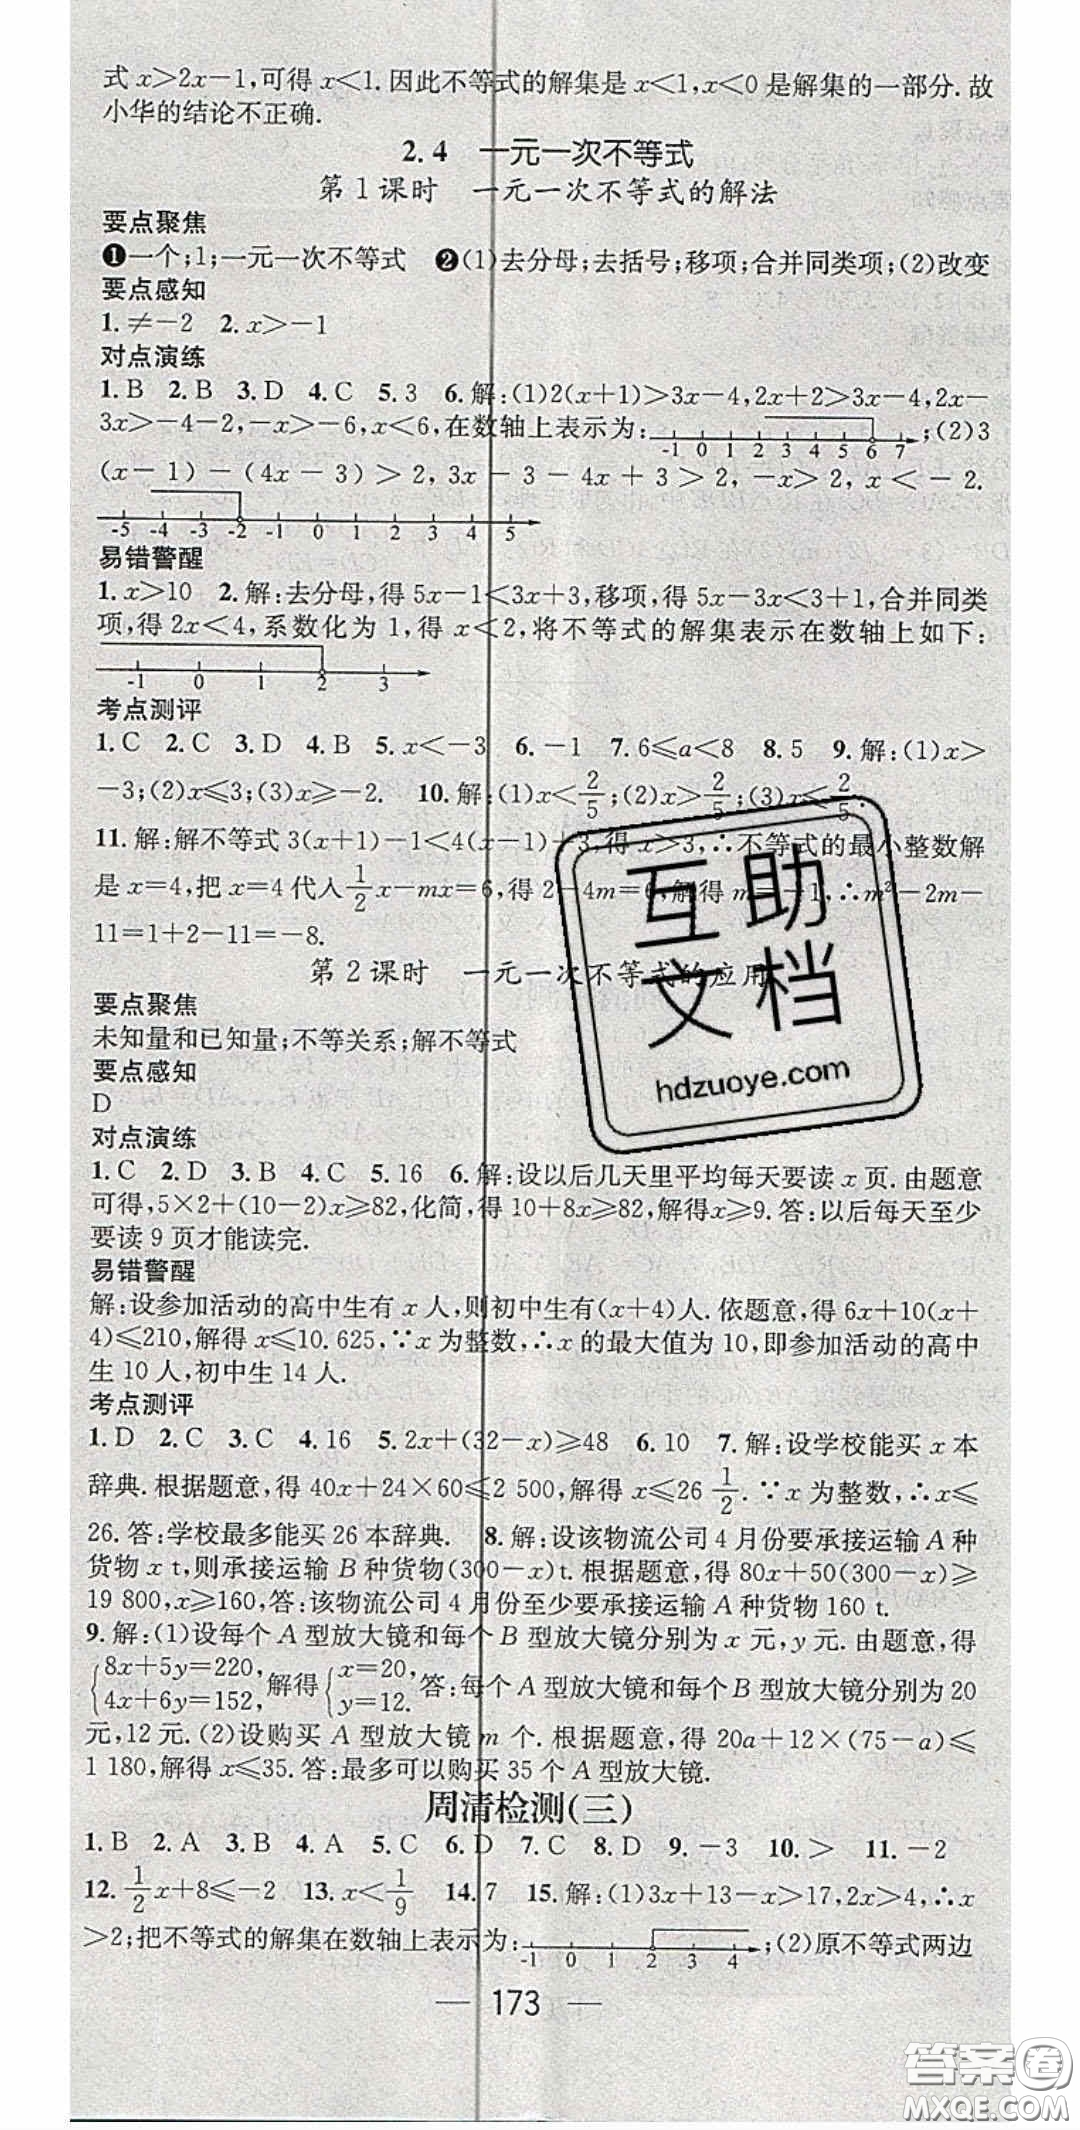 式 x＞2x－1,可得 x＜1. 因此不等式的解集是 x＜1,x＜0 是解集的一部分. 故
小华的结论不正确.
2.4 一元一次不等式
第 1 课时 一元一次不等式的解法
要点聚焦
❶一个;1;一元一次不等式 ❷(1)去分母;去括号;移项;合并同类项;(2)改变
要点感知
1. ≠－2 2. x＞－1
对点演练
1. B 2. B 3. D 4. C 5. 3 6. 解:(1)2(x＋1)＞3x－4,2x＋2＞3x－4,2x－
3x＞－4－2,－x＞－6,x＜6,在数轴上表示为: -1 0 1 2 3 4 5 6 7 ;(2)3
(x－1)－(4x－3)＞2,3x－3－4x＋3＞2,－x＞2,x＜－2.
-5 -4 -3 -2 -1 0 1 2 3 4 5
易错警醒
1. x＞10 2. 解:去分母,得 5x－1＜3x＋3,移项,得 5x－3x＜3＋1,合并同类
项,得 2x＜4,系数化为 1,得 x＜2,将不等式的解集表示在数轴上如下:
-1 0 1 2 3
考点测评
1. C 2. C 3. D 4. B 5. x＜－3 6. －1 7. 6≤a＜8 8. 5 9. 解:(1)x＞
－3;(2)x≤3;(3)x≥－2. 10. 解:(1)x＜2/5;(2)x＞2/5;(3)x≤2/5.
11. 解:解不等式 3(x＋1)－1＜4(x－1)＋3,得 x＞3,∴不等式的最小整数解
是 x＝4,把 x＝4 代入 1/2 x－mx＝6,得 2－4m＝6,解得 m＝－1,∴m²－2m－
11＝1＋2－11＝－8.
第 2 课时 一元一次不等式的应用
要点聚焦
未知量和已知量;不等关系;解不等式
要点感知
D
对点演练
1. C 2. D 3. B 4. C 5. 16 6. 解:设以后几天里平均每天要读 x 页. 由题意
可得,5×2＋(10－2)x≥82,化简,得 10＋8x≥82,解得x≥9. 答:以后每天至少
要读 9 页才能读完.
易错警醒
解:设参加活动的高中生有 x 人,则初中生有(x＋4)人. 依题意,得 6x＋10(x＋
4)≤210,解得 x≤10.625,∵x 为整数,∴x 的最大值为 10,即参加活动的高中
生 10 人,初中生 14 人.
考点测评
1. D 2. C 3. C 4. 16 5. 2x＋(32－x)≥48 6. 10 7. 解:设学校能买 x 本
辞典. 根据题意,得 40x＋24×60≤2 500,解得 x≤26 1/2. ∵x 为整数,∴x≤
26. 答:学校最多能买 26 本辞典. 8. 解:设该物流公司 4 月份要承接运输 A 种
货物 x t,则承接运输 B 种货物(300－x)t. 根据题意,得 80x＋50(300－x)≥
19 800,x≥160,答:该物流公司 4 月份至少要承接运输 A 种货物 160 t.
9. 解:(1)设每个 A 型放大镜和每个 B 型放大镜分别为 x 元,y 元. 由题意,得
{8x＋5y＝220, 4x＋6y＝152, 解得 {x＝20, y＝12. 答:每个 A 型放大镜和每个 B 型放大镜分别为 20
元,12 元. (2)设购买 A 型放大镜 m 个. 根据题意,得 20a＋12×(75－a)≤
1 180,解得 x≤35. 答:最多可以购买 35 个 A 型放大镜.
周清检测(三)
1. B 2. A 3. B 4. A 5. C 6. D 7. C 8. D 9. －3 10. ＞ 11. －2
12. 1/2 x＋8≤－2 13. x＜1/9 14. 7 15. 解:(1)3x＋13－x＞17,2x＞4,∴x
＞2;把不等式的解集在数轴上表示为: -1 0 1 2 3 4 ;(2)原不等式两边
— 173 —
互助
文档
hdzuoye.com
答案圈
MXQE.COM